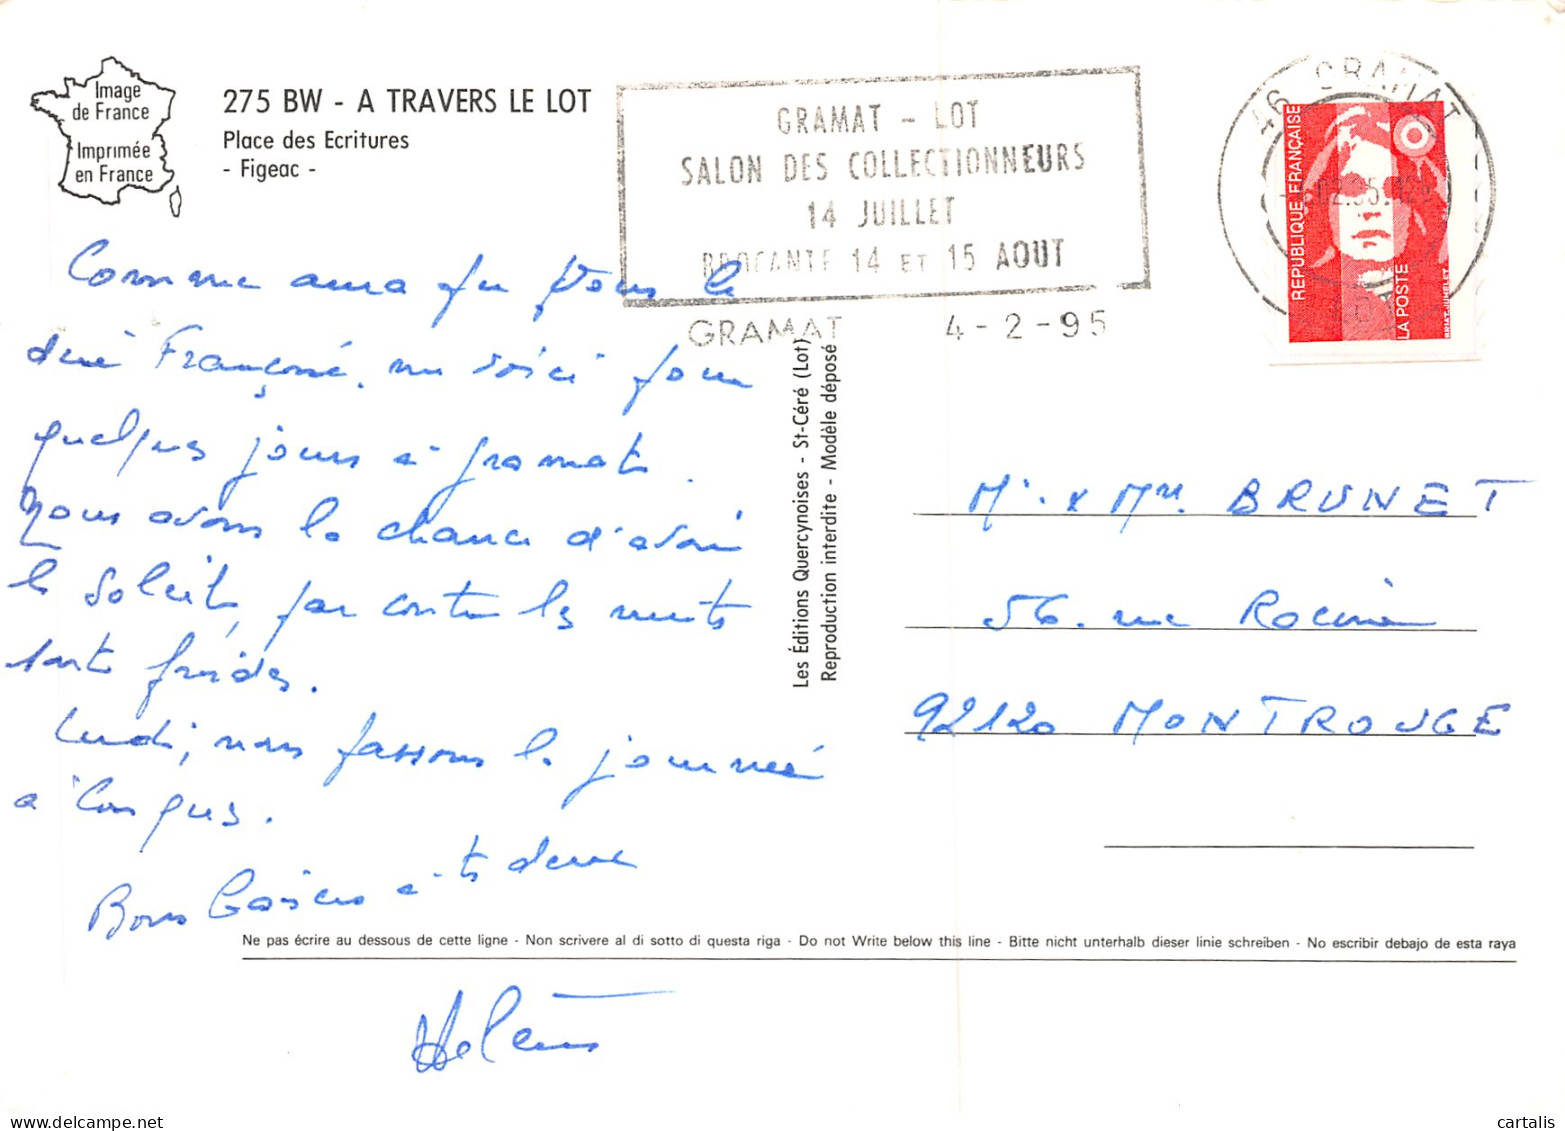 Image
de France
Imprimée
en France
275 BW - A TRAVERS LE LOT
Place des Ecritures
- Figeac -
GRAMAT - LOT
SALON DES COLLECTIONNEURS
14 JUILLET
BROCANTE 14 ET 15 AOUT
GRAMAT 4-2-95
46 GRAMAT
REPUBLIQUE FRANÇAISE
LA POSTE
BRIAT-JUMELET
Comme aura pu vous le
dire me voici pour
quelques jours à Gramat.
Nous avons la chance d'avoir
le soleil, par contre les nuits
sont froides.
Lundi, nous passons la journée
à
Bons Baisers à ts deux
Les Éditions Quercynoises - St-Céré (Lot)
Reproduction interdite - Modèle déposé
Mr. & Mme BRUNET
56. rue Racine
92120 MONTROUGE
Ne pas écrire au dessous de cette ligne - Non scrivere al di sotto di questa riga - Do not Write below this line - Bitte nicht unterhalb dieser linie schreiben - No escribir debajo de esta raya
cartalis
delcampe.net